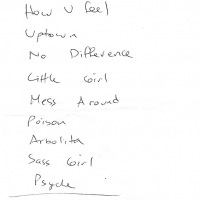 How U Feel
Uptown
No Difference
Little Girl
Mess Around
Poison
Arbolita
Sass Girl
Psycle